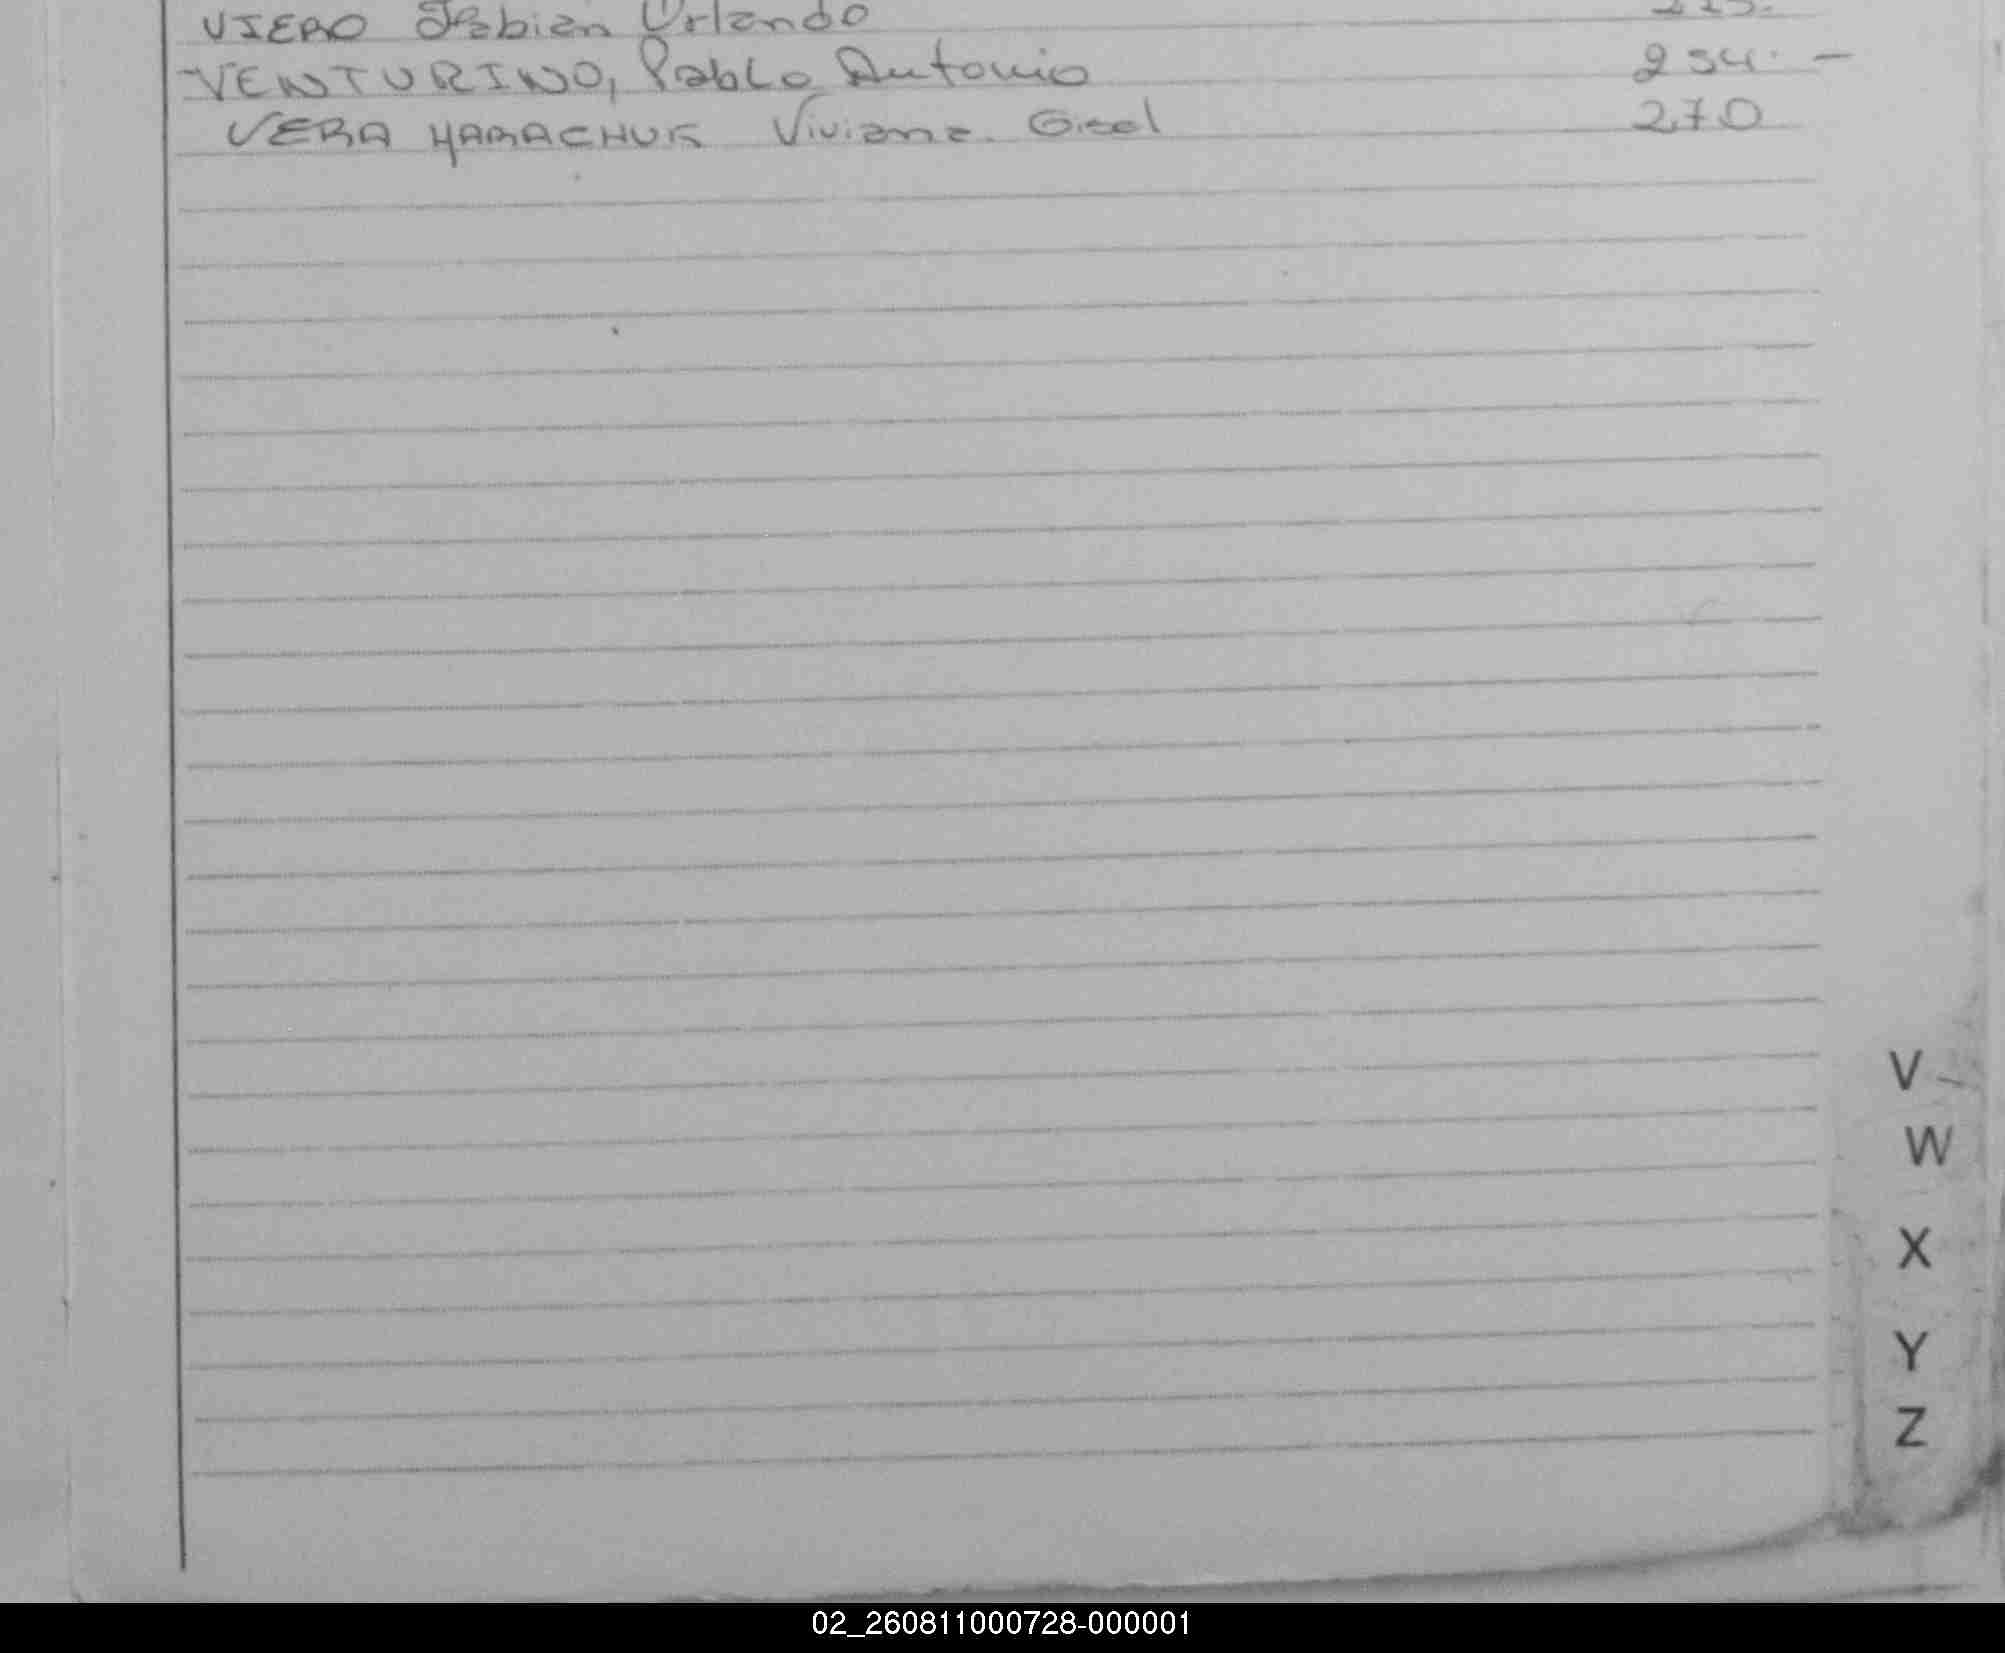 VIERO Fabian Orlando
VENTURINO, Pablo Antonio 254. -
VERA HARACHUK Viviana Gisel 270
V
W
X
Y
Z
02_260811000728-000001